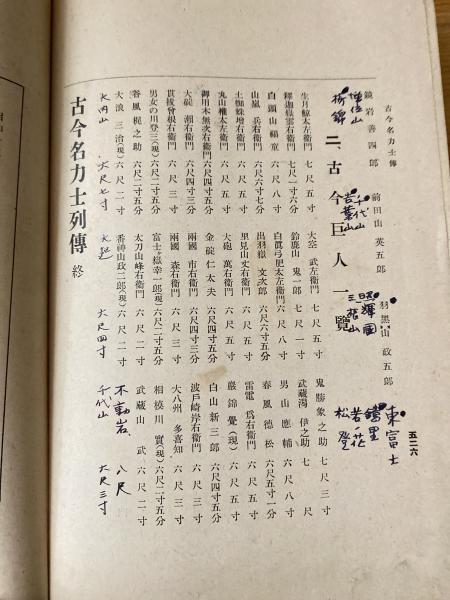 古今名力士傳
五二六
鏡岩善四郎
前田山英五郎
羽黒山政五郎
増位山
栃錦
千代山
吉葉山
照國
三根山
東富士
鏡里
若ノ花
松登
二、古今巨人一覽
生月鯨太左衛門 七尺五寸
釋迦嶽雲右衛門 七尺一寸六分
白頭山福童 六尺八寸
山嵐兵右衛門 六尺六寸七分
土蜘蛛増右衛門 六尺五寸
丸山權太左衛門 六尺五寸
御用木無次右衛門 六尺四寸五分
大碇瀬右衛門 六尺四寸三分
貫拔曾根右衛門 六尺三寸
男女の川登三(現) 六尺二寸五分
谷風梶之助 六尺二寸五分
大浪三治(現) 六尺二寸
大空武左衛門 七尺五寸
鈴鹿山鬼一郎 七尺一寸
白眞弓肥太左衛門 六尺八寸
出羽嶽文次郎 六尺六寸五分
里見山丈右衛門 六尺五寸
大砲萬右衛門 六尺五寸
金碇仁太夫 六尺四寸五分
兩國市右衛門 六尺四寸三分
兩國森右衛門 六尺三寸
富士ヶ嶽幸一郎(現) 六尺二寸五分
太刀山峰右衛門 六尺二寸
番神山政二郎(現) 六尺二寸
鬼勝象之助 七尺三寸
武藏潟伊之助 七尺
男山應輔 六尺八寸
春風德松 六尺五寸一分
雷電爲右衛門 六尺五寸
巖錦覺(現) 六尺五寸
白山新三郎 六尺四寸五分
波戸崎岸右衛門 六尺四寸
大八州多喜知 六尺三寸
相模川實(現) 六尺二寸五分
武藏山武 六尺二寸
不動岩 八尺
大内山 六尺七寸
大起 六尺四寸
千代山 六尺三寸
古今名力士列傳 終